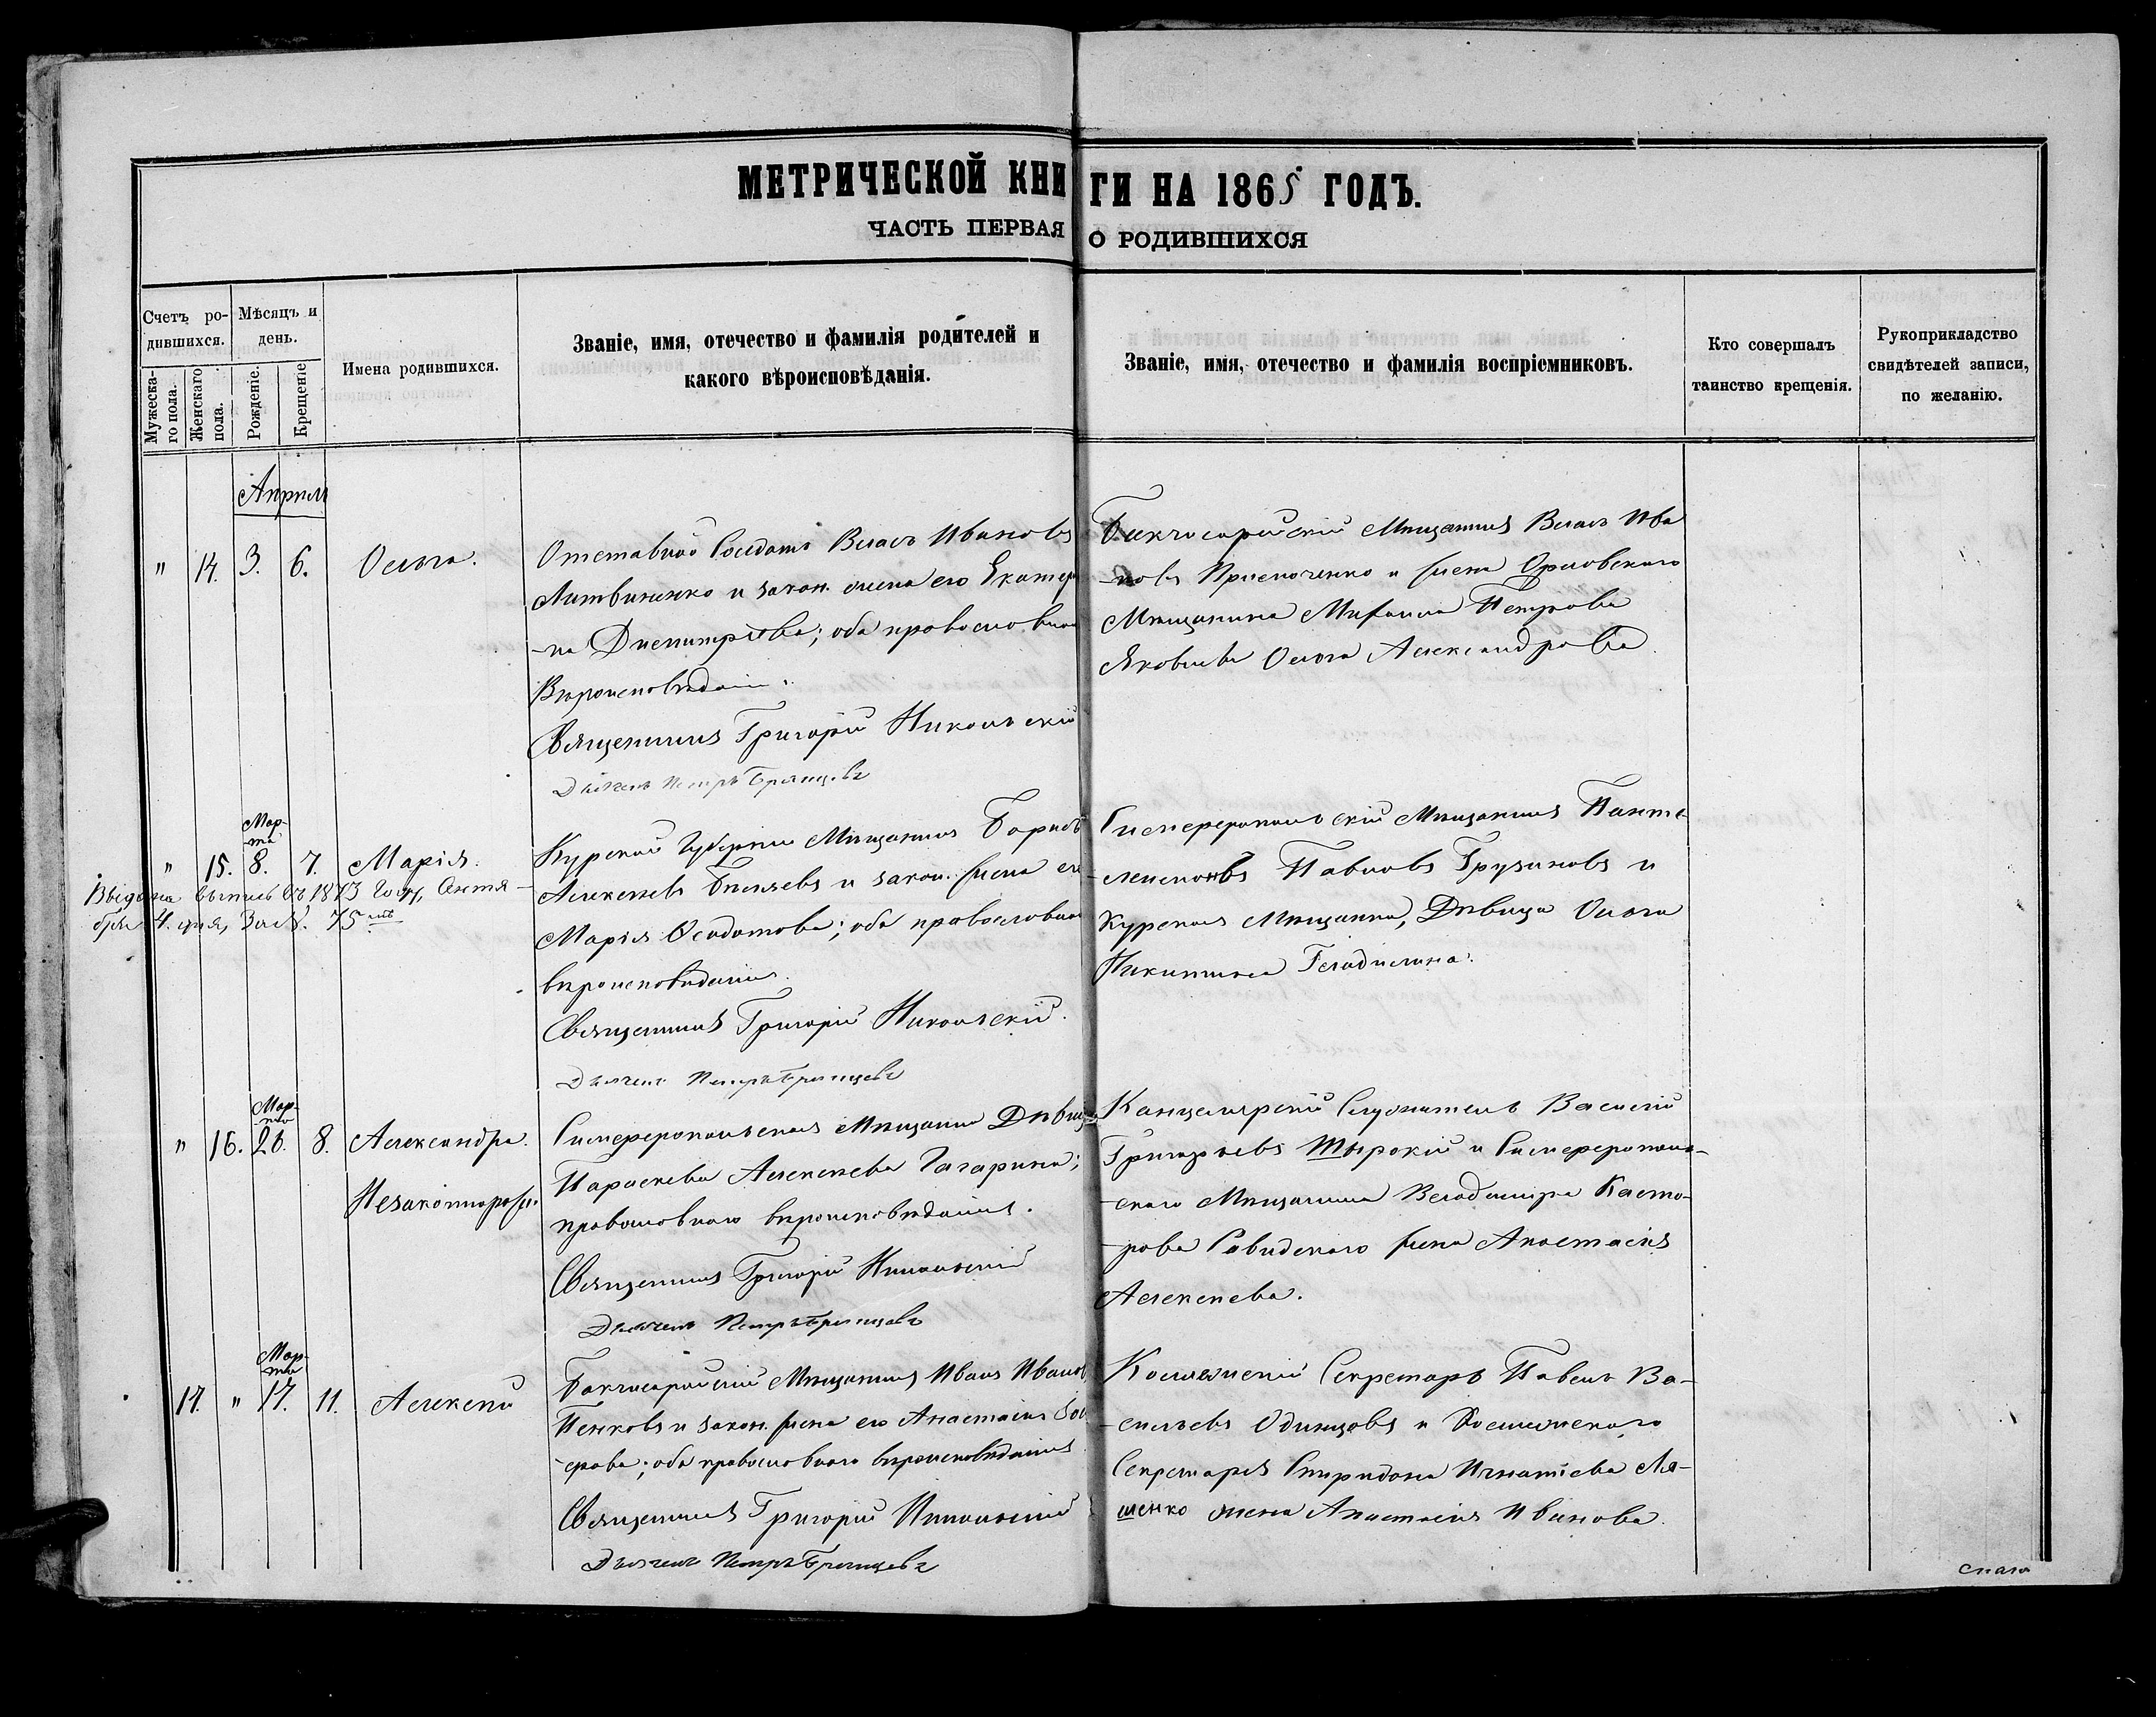 МЕТРИЧЕСКОЙ КНИГИ НА 1865 ГОДЪ.
ЧАСТЬ ПЕРВАЯ О РОДИВШИХСЯ
Счетъ ро-
дившихся.
Мужеска-
го пола.
Женскаго
пола.
Мѣсяцъ и
день.
Рожденіе.
Крещеніе
Имена родившихся.
Званіе, имя, отечество и фамилія родителей и
какого вѣроисповѣданія.
Званіе, имя, отечество и фамилія воспріемниковъ.
Кто совершалъ
таинство крещенія.
Рукоприкладство
свидѣтелей записи,
по желанію.
Апрѣль
" 14. 3. 6. Ольга.
Отставной Солдатъ Власъ Ивановъ
Литвиненко и закон. жена его Екатери
-на Дмитріева; оба православнаго
Вѣроисповѣданія.
Священникъ Григорій Никольскій
Дьячекъ Петръ Брянцевъ
Бакчисарайскій Мѣщанинъ Власъ Ива
-новъ и жена Орловскаго
Мѣщанина Михаила Петрова
Яковлева Ольга Александрова.
Мар-
та
" 15. 8. 7. Марія.
Выдана выпись въ 1873 году, Октя-
бря 4. дня, за №. 75.
Курской Губерніи Мѣщанинъ Борисъ
Алексѣевъ Бѣляевъ и закон. жена его
Марія Ѳедотова; оба православнаго
вѣроисповѣданія.
Священникъ Григорій Никольскій.
Дьячекъ Петръ Брянцевъ
Симферопольскій Мѣщанинъ Панте-
леимоновъ Павловъ Грузиновъ и
Курская Мѣщанка, Дѣвица Ольга
Никитина Гладилина.
Мар-
та
" 16. 28. 8. Александра.
Незаконнорожд.
Симферопольская Мѣщанка Дѣвица
Параскева Алексѣева Гагарина;
православнаго вѣроисповѣданія.
Священникъ Григорій Никольскій
Дьячекъ Петръ Брянцевъ
Канцелярскій Служитель Василій
Григорьевъ Широкій и Симферополь-
скаго Мѣщанина Владиміра Касто-
рова Савидскаго жена Анастасія
Алексѣева.
Мар-
та
14. " 17. 11. Алексѣй
Бакчисарайскій Мѣщанинъ Иванъ Ивановъ
Пенковъ и закон. жена его Анастасія
оба православнаго вѣроисповѣданія
Священникъ Григорій Никольскій
Дьячекъ Петръ Брянцевъ
Коллежскій Секретарь Павелъ Ва-
сильевъ Одинцовъ и Коллежскаго
Секретаря Спиридона Игнатіева Ля-
шенко жена Анастасія Иванова.